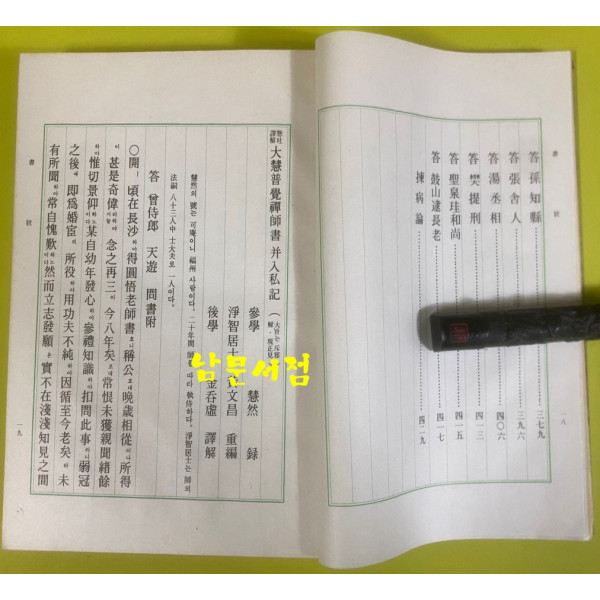 答孫知縣……三七九
答張舍人……三九六
答湯丞相……四〇六
答樊提刑……四一三
答聖泉珪和尚……四一五
答鼓山逮長老……四一七
揀病論……四二九
書狀
一八
懸吐譯解 大慧普覺禪師書 并入私記
參學 慧然 錄
淨智居士 黃文昌 重編
後學 金呑虛 譯解
慧然의 號는 可庵이니 福州 사람이다. 二十年間 師를 따라 執侍하다. 淨智居士는 師의
法嗣 八十三人中 士大夫로 一人이다.
答 曾侍郎 天遊 問書附
〇開 頃在長沙하야 得圓悟老師書호니 稱公호대 晚歲相從이나 所得
이 甚是奇偉라하야늘 念之再三이 今八年矣로대 常恨未獲親聞緖餘
하야 惟切景仰하노이다 某自幼年發心하야 參禮知識하야 扣問此事러니 弱冠
之後에 即爲婚宦의 所役하야 用功夫不純하야 因循至今老矣라 未
有所聞하야 常自愧歎하노이다 然而立志發願은 實不在淺淺知見之間
書狀
一九
남문서점